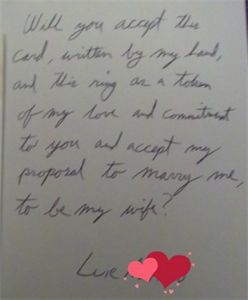 Will you accept this
card, written by my hand,
and this ring as a token
of my love and commitment
to you and accept my
proposal to marry me,
to be my wife?
Love